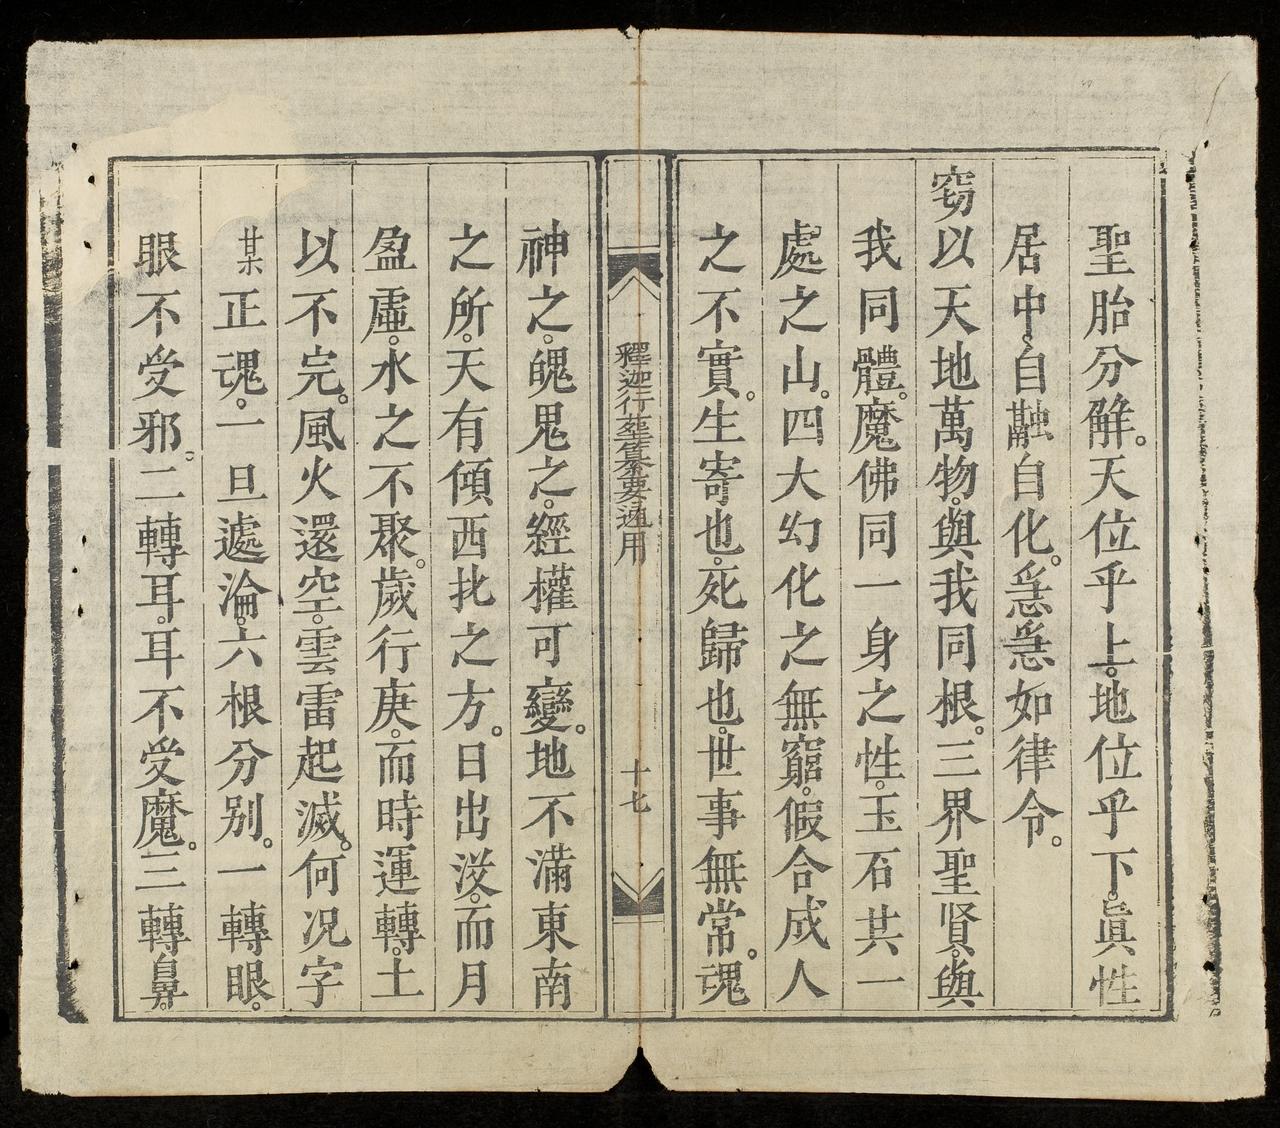 聖胎分解。天位乎上。地位乎下。眞性
居中。自融自化。急急如律令。
窃以天地萬物。與我同根。三界聖賢。與
我同體。魔佛同一身之性。玉石共一
處之山。四大幻化之無窮。假合成人
之不實。生寄也。死歸也。世事無常。魂
釋迦行塟纂要通用
十七
神之。魄鬼之。經權可變。地不滿東南
之所。天有傾西北之方。日出沒。而月
盈虛。水之不聚。歲行庚。而時運轉。土
以不完。風火還空。雲雷起滅。何况字
某正魂。一旦遽淪。六根分别。一轉眼。
眼不受邪。二轉耳。耳不受魔。三轉鼻。